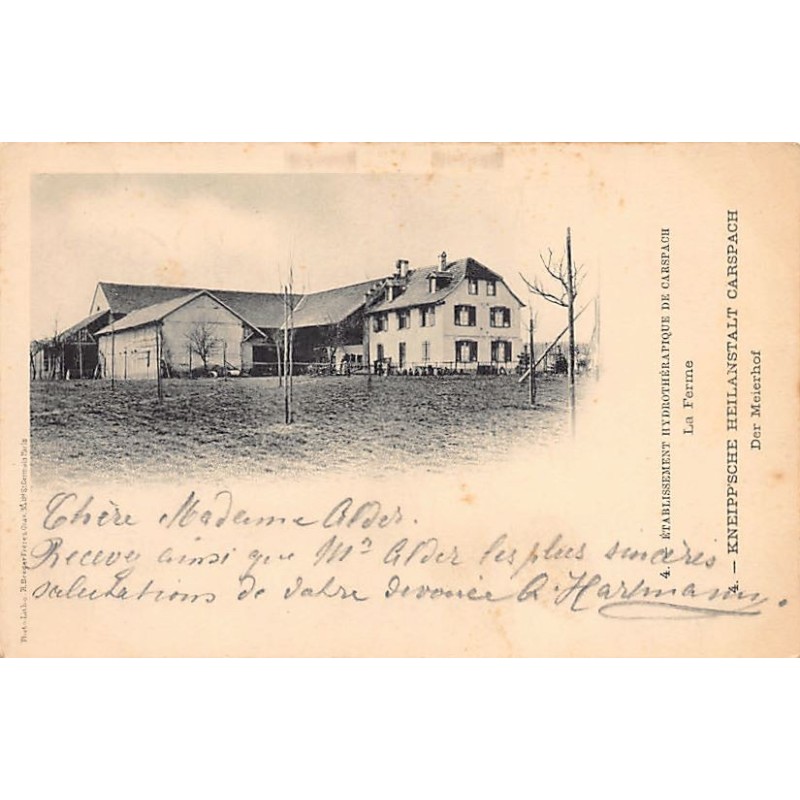 4. ÉTABLISSEMENT HYDROTHÉRAPIQUE DE CARSPACH
La Ferme
4. — KNEIPP'SCHE HEILANSTALT CARSPACH
Der Meierhof
Chère Madame Alder.
Recevez ainsi que Mr Alder les plus sincères
salutations de votre devouée A. Hartmann.